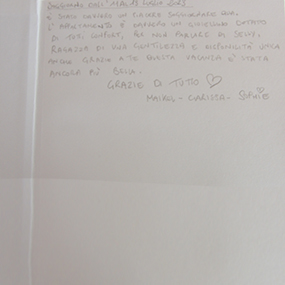 SOGGIORNO DALL' 11 AL 18 LUGLIO
È STATO DAVVERO UN PIACERE SOGGIORNARE QUI.
L' APPARTAMENTO È DAVVERO UN GIOIELLINO DOTATO
DI TUTTI COMFORT, PER NON PARLARE DI
RAGAZZA DI UNA GENTILEZZA E DISPONIBILITÀ UNICA
ANCHE GRAZIE A TE QUESTA VACANZA È STATA
ANCORA PIÙ BELLA.
GRAZIE DI TUTTO ♡
MAIKOL - CLARISSA - SOPHIE